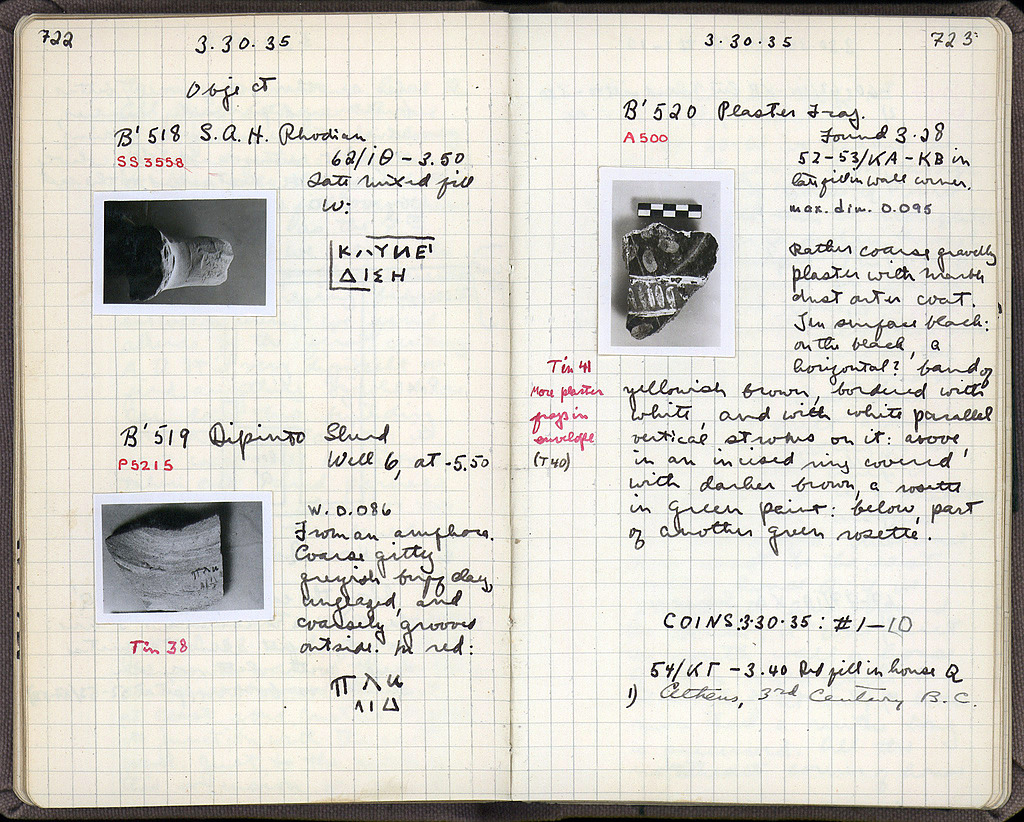 722
3·30·35
Object
B'518 S.A.H. Rhodian
SS 3558
62/ΙΘ – 3.50
Late mixed fill
W:
ΔΙΣΗ
B'519 Dipinto Sherd
P5215
Well 6, at -5.50
W. 0.086
From an amphora.
Coarse gritty
greyish buff clay,
unglazed, and
coarsely grooved
outside. In red:
Tin 38
723
3·30·35
B'520 Plaster Frag.
A 500
Found 3·28
52-53/KA-KB in
late fill in wall corner.
max. dim. 0.095
Rather coarse gravelly
plaster with marble
dust outer coat.
The surface black:
on the black, a
horizontal? band of
yellowish brown, bordered with
white, and with white parallel
vertical strokes on it: above,
in an incised ring covered
with darker brown, a rosette
in green paint: below, part
of another green rosette.
Tin 41
More plaster
frags in
envelope
(T40)
COINS: 3·30·35: #1–10
54/ΚΓ – 3.40 Red fill in house Q
1) Athens, 3rd Century B.C.